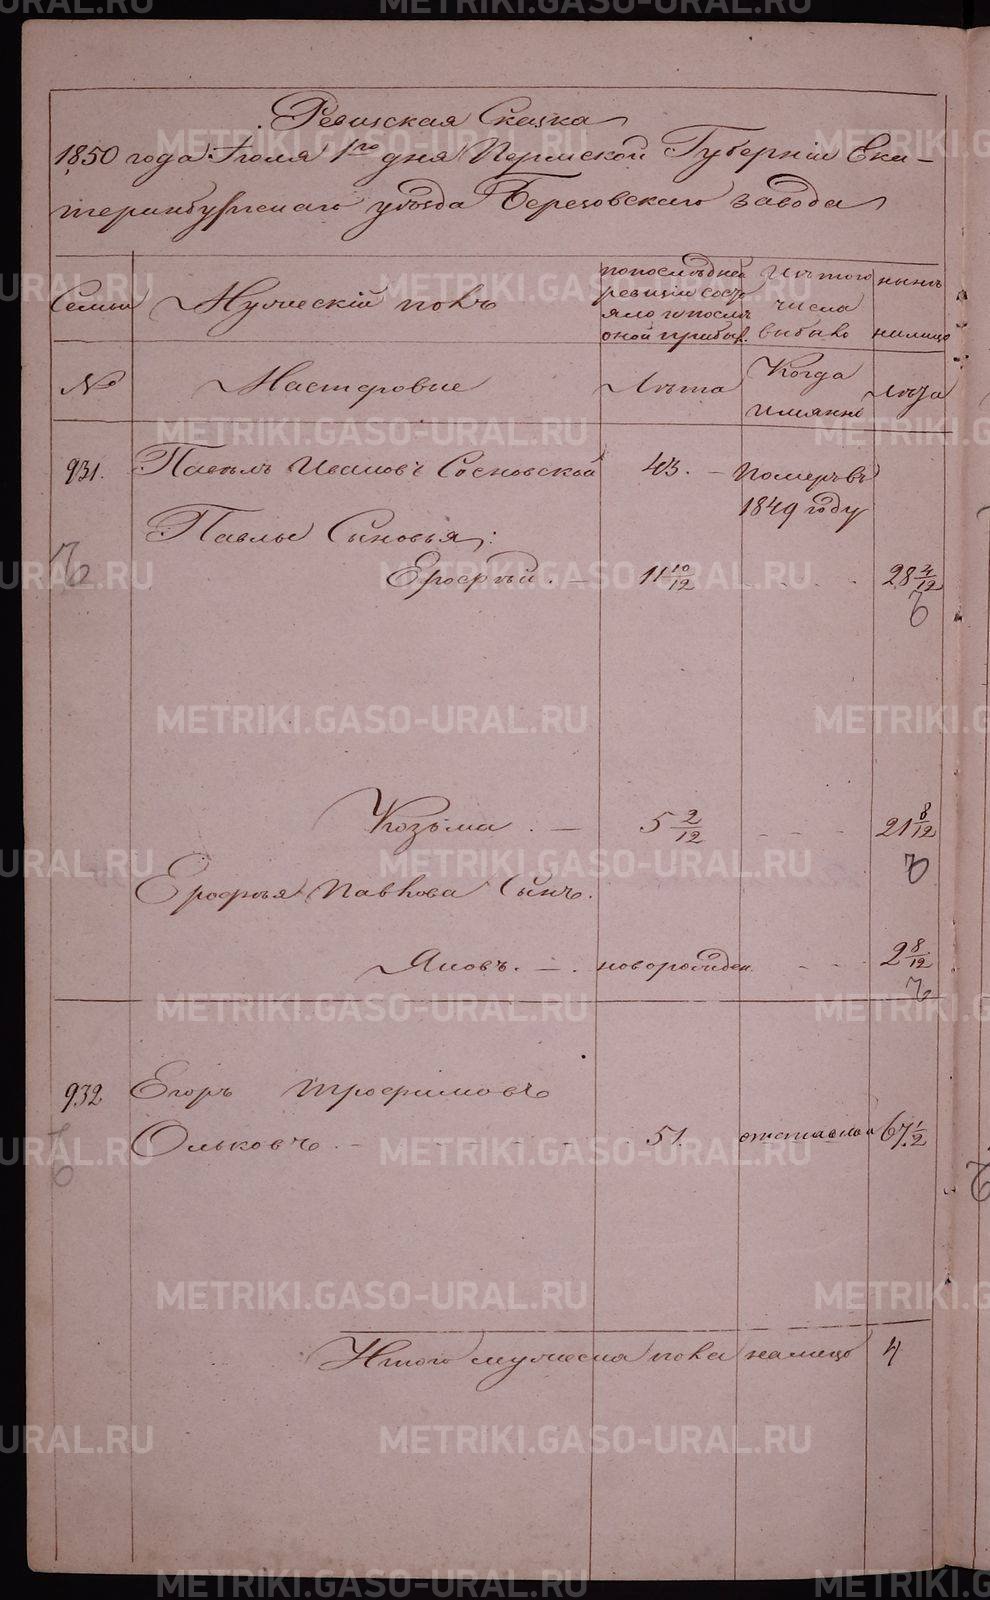 Ревизская Сказка
1850 года Iюля 1го дня Пермской Губернiи Ека-
теринбургскаго уѣзда Березовскаго завода
Семьи
Мужескiй полъ
по последней
ревизiи состо
яло и после
оной прибыл.
Изъ того
числа
выбыло
нынѣ
налицо
№
Мастеровые
Лѣта
Когда
имянно
Лѣта
931. Павелъ Ивановъ Сосновской 43. - Померъ въ
1849 году
Павла Сыновья:
Ерофѣй. - 11 10/12 - - - 28 4/12
Козьма. - 5 2/12 - - - 21 8/12
Ерофѣя Павлова Сынъ.
Яковъ. - . новорожден. - - 2 8/12
932 Егоръ Трофимовъ
Ольковъ - - - - - 51. отставной 67 1/2
Итого мужеска пола налицо 4
METRIKI.GASO-URAL.RU